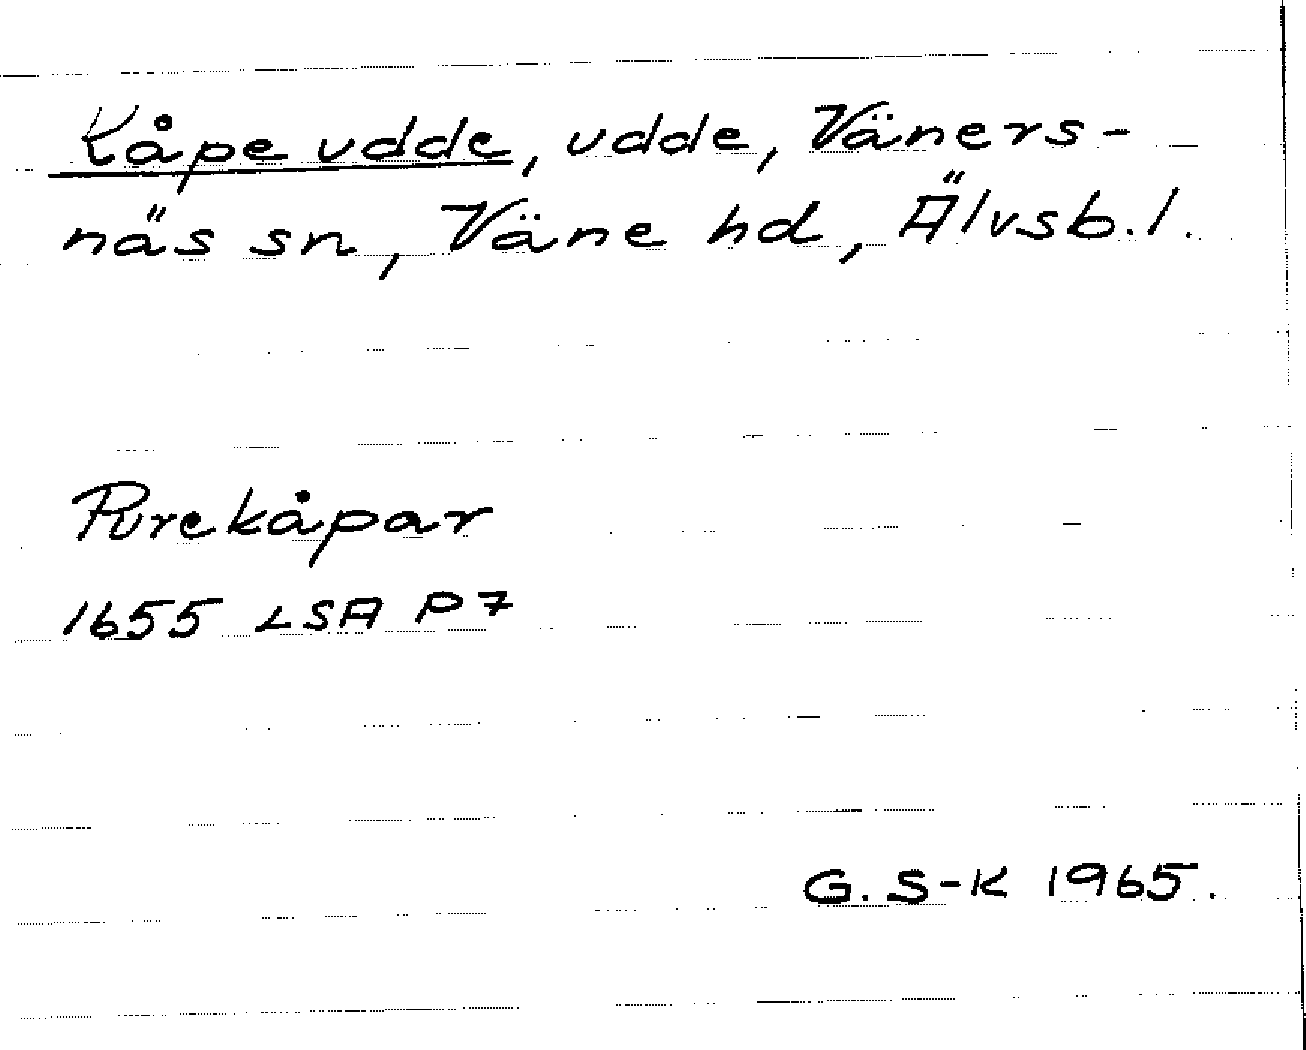 Kåpe udde, udde, Väners-
näs sn, Väne hd, Älvsb.l.
Purekåpar
1655 LSA P7
G. S-K 1965.